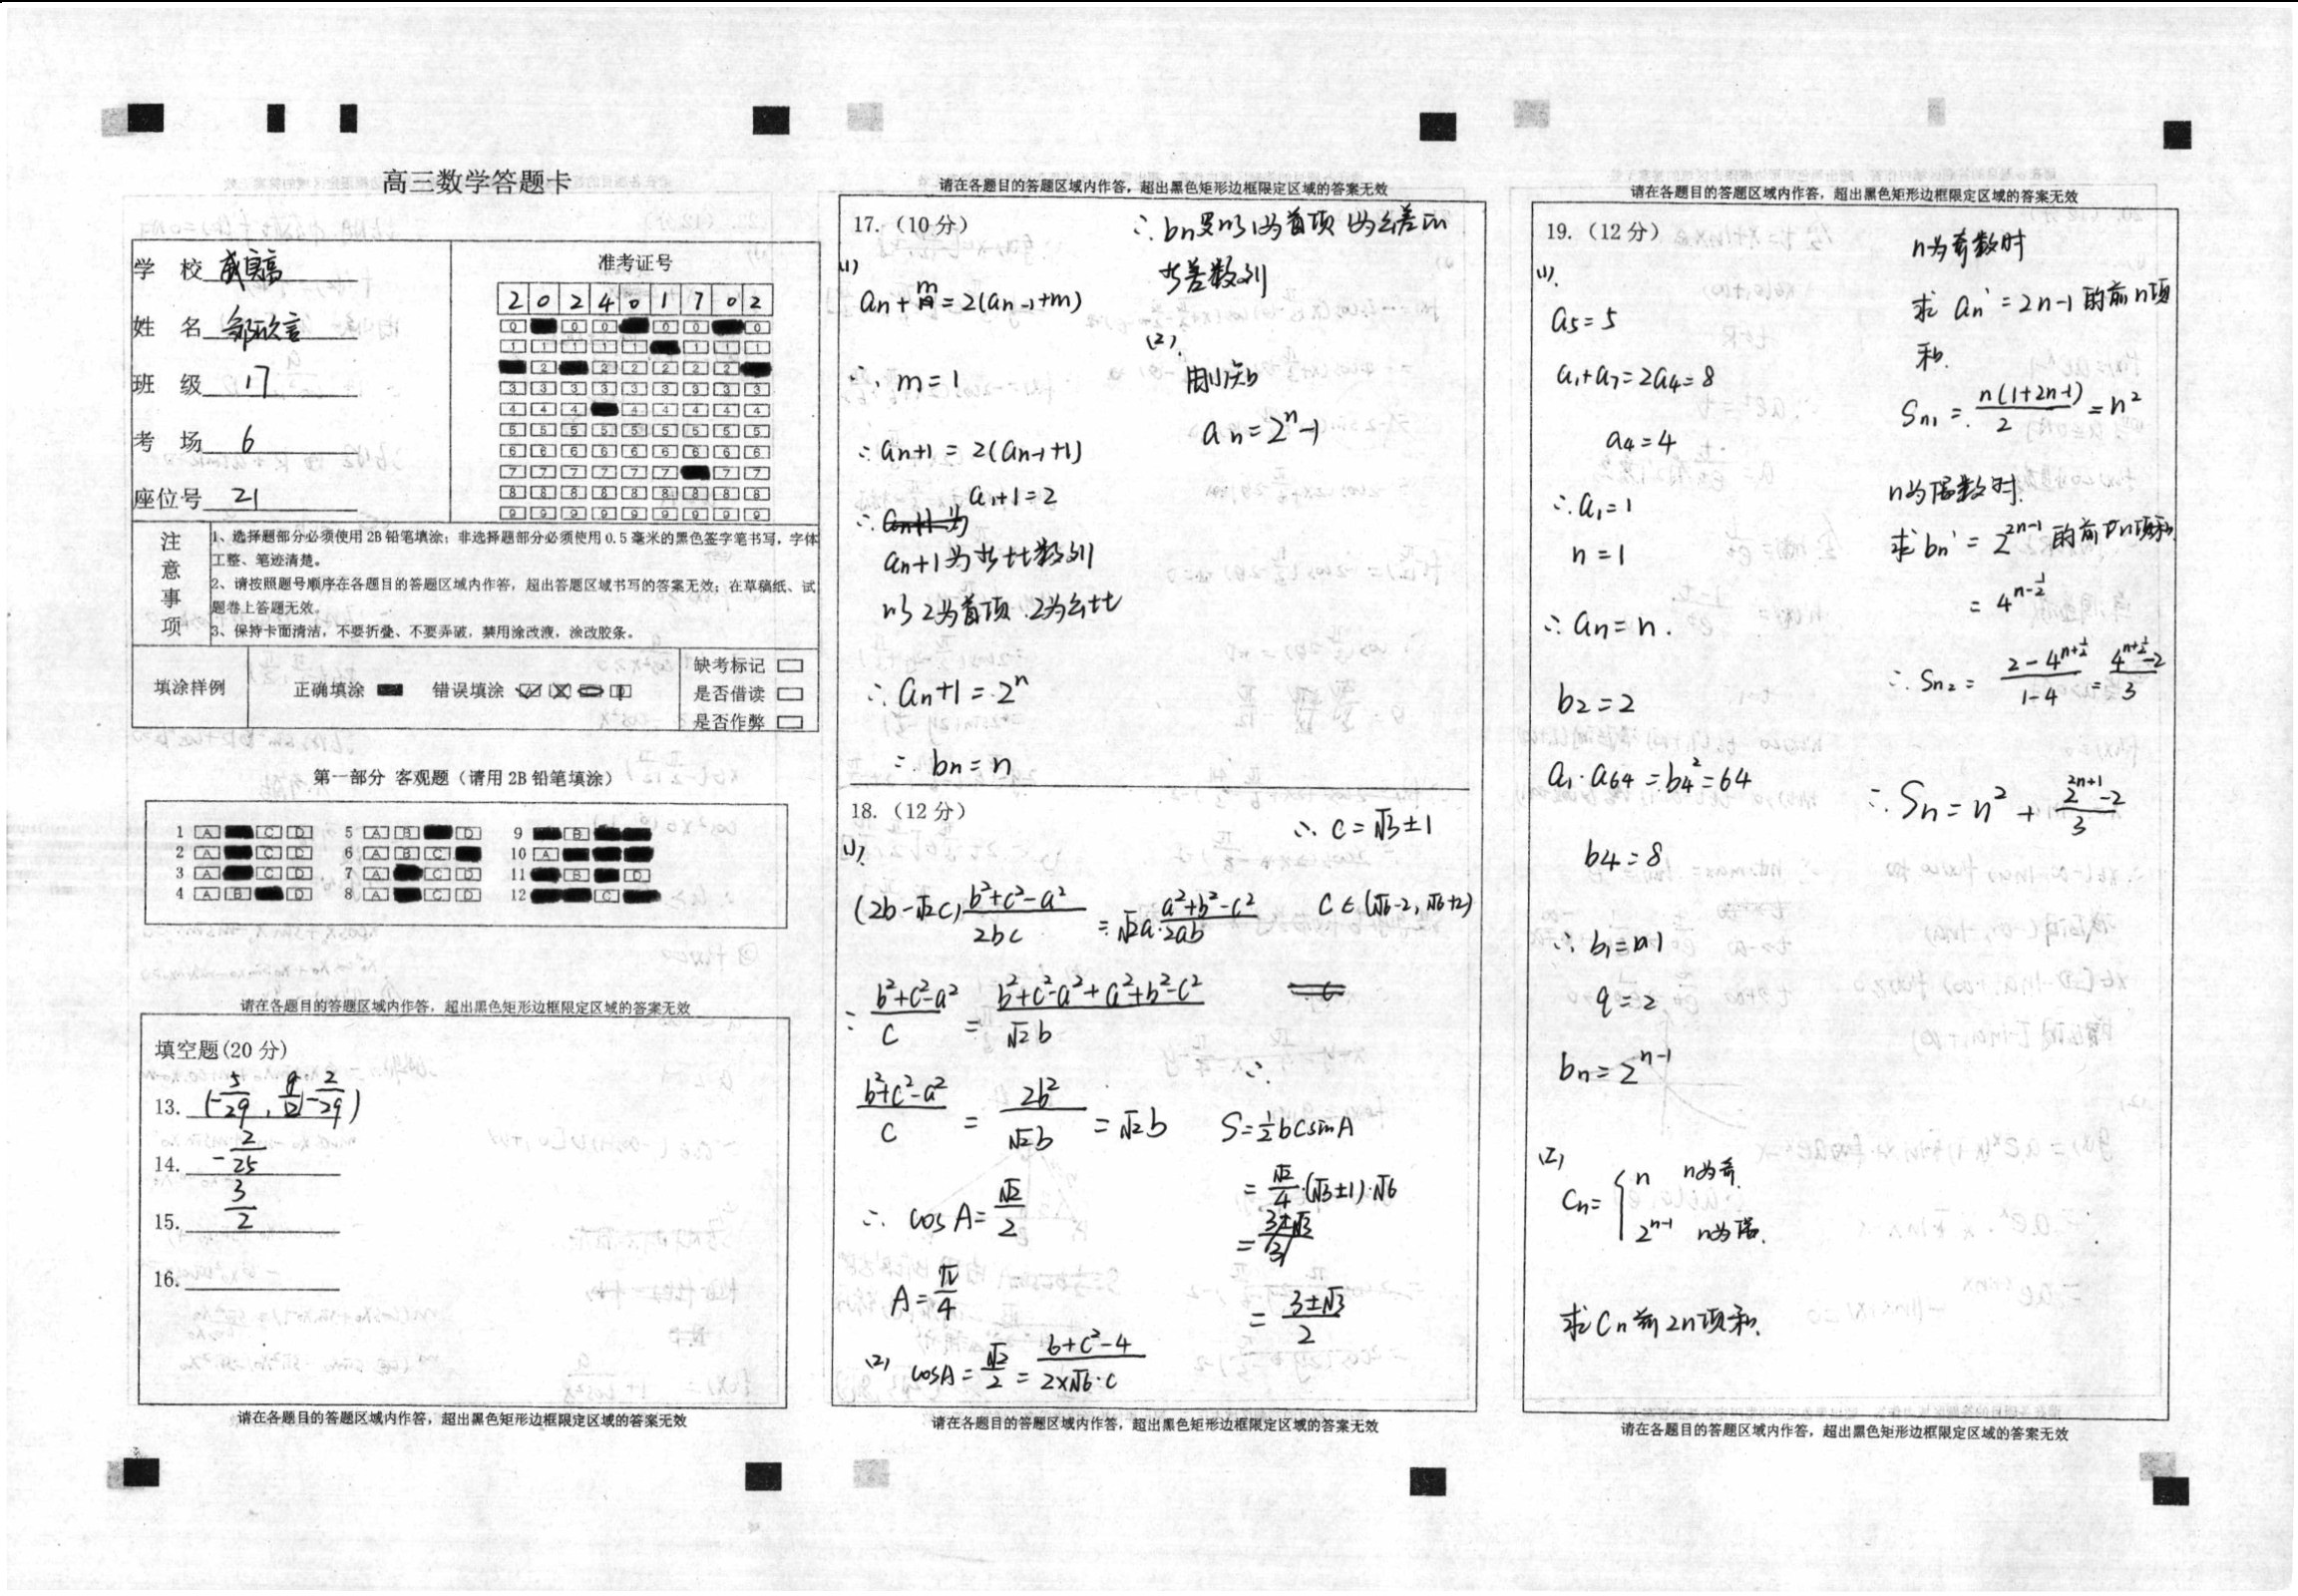 高三数学答题卡
学 校 咸宜高
姓 名 邹欣言
班 级 17
考 场 6
座位号 21
准考证号
2 0 2 4 0 1 7 0 2
注意事项
1、选择题部分必须使用2B铅笔填涂；非选择题部分必须使用0.5毫米的黑色签字笔书写，字体
工整、笔迹清楚。
2、请按照题号顺序在各题目的答题区域内作答，超出答题区域书写的答案无效；在草稿纸、试
题卷上答题无效。
3、保持卡面清洁，不要折叠、不要弄破，禁用涂改液，涂改胶条。
填涂样例 正确填涂 错误填涂
缺考标记
是否借读
是否作弊
第一部分 客观题（请用2B铅笔填涂）
1 A C D 5 A B D 9 B
2 A C D 6 A B C 10 A
3 A C D 7 A C D 11 B D
4 A B D 8 A C D 12 C
请在各题目的答题区域内作答，超出黑色矩形边框限定区域的答案无效
填空题(20分)
13. (-5/29, -2/29)
14. -2/25
15. 3/2
16.
请在各题目的答题区域内作答，超出黑色矩形边框限定区域的答案无效
请在各题目的答题区域内作答，超出黑色矩形边框限定区域的答案无效
17.（10分）
(1)
an+m=2(an-1+m)
∴ m=1
∴an+1=2(an-1+1)
a1+1=2
∴
an+1为等比数列
以2为首项.2为公比
∴ an+1=2^n
∴ bn=n
∴ bn是以1为首项 1为公差的
等差数列
(2).
由(1)知
an=2^n-1
18.（12分）
(1).
(2b-√2c)(b²+c²-a²)/2bc=√2a·(a²+b²-c²)/2ab
∴ (b²+c²-a²)/c=(b²+c²-a²+a²+b²-c²)/√2b
(b²+c²-a²)/c=2b²/√2b=√2b
∴ cosA=√2/2
A=π/4
(2) cosA=√2/2=(6+c²-4)/(2×√6·c)
∴ c=√3±1
c∈(√6-2, √6+2)
∴
S=½bcsinA
=√2/4·(√3±1)·√6
=(3±√3)/2
请在各题目的答题区域内作答，超出黑色矩形边框限定区域的答案无效
请在各题目的答题区域内作答，超出黑色矩形边框限定区域的答案无效
19.（12分）
(1).
a5=5
a1+a7=2a4=8
a4=4
∴a1=1
n=1
∴an=n.
b2=2
a1·a64=b4²=64
b4=8
∴b1=1
q=2
bn=2^(n-1)
(2)
Cn={n n为奇.
2^(n-1) n为偶.
求Cn前2n项和.
n为奇数时
求 an'=2n-1的前n项
和.
Sn1=n(1+2n-1)/2=n²
n为偶数时.
求bn'=2^(2n-1)的前n项和
=4^(n-1/2)
∴Sn2=(2-4^(n+1/2))/(1-4)=(4^(n+1/2)-2)/3
∴Sn=n²+(2^(2n+1)-2)/3
请在各题目的答题区域内作答，超出黑色矩形边框限定区域的答案无效